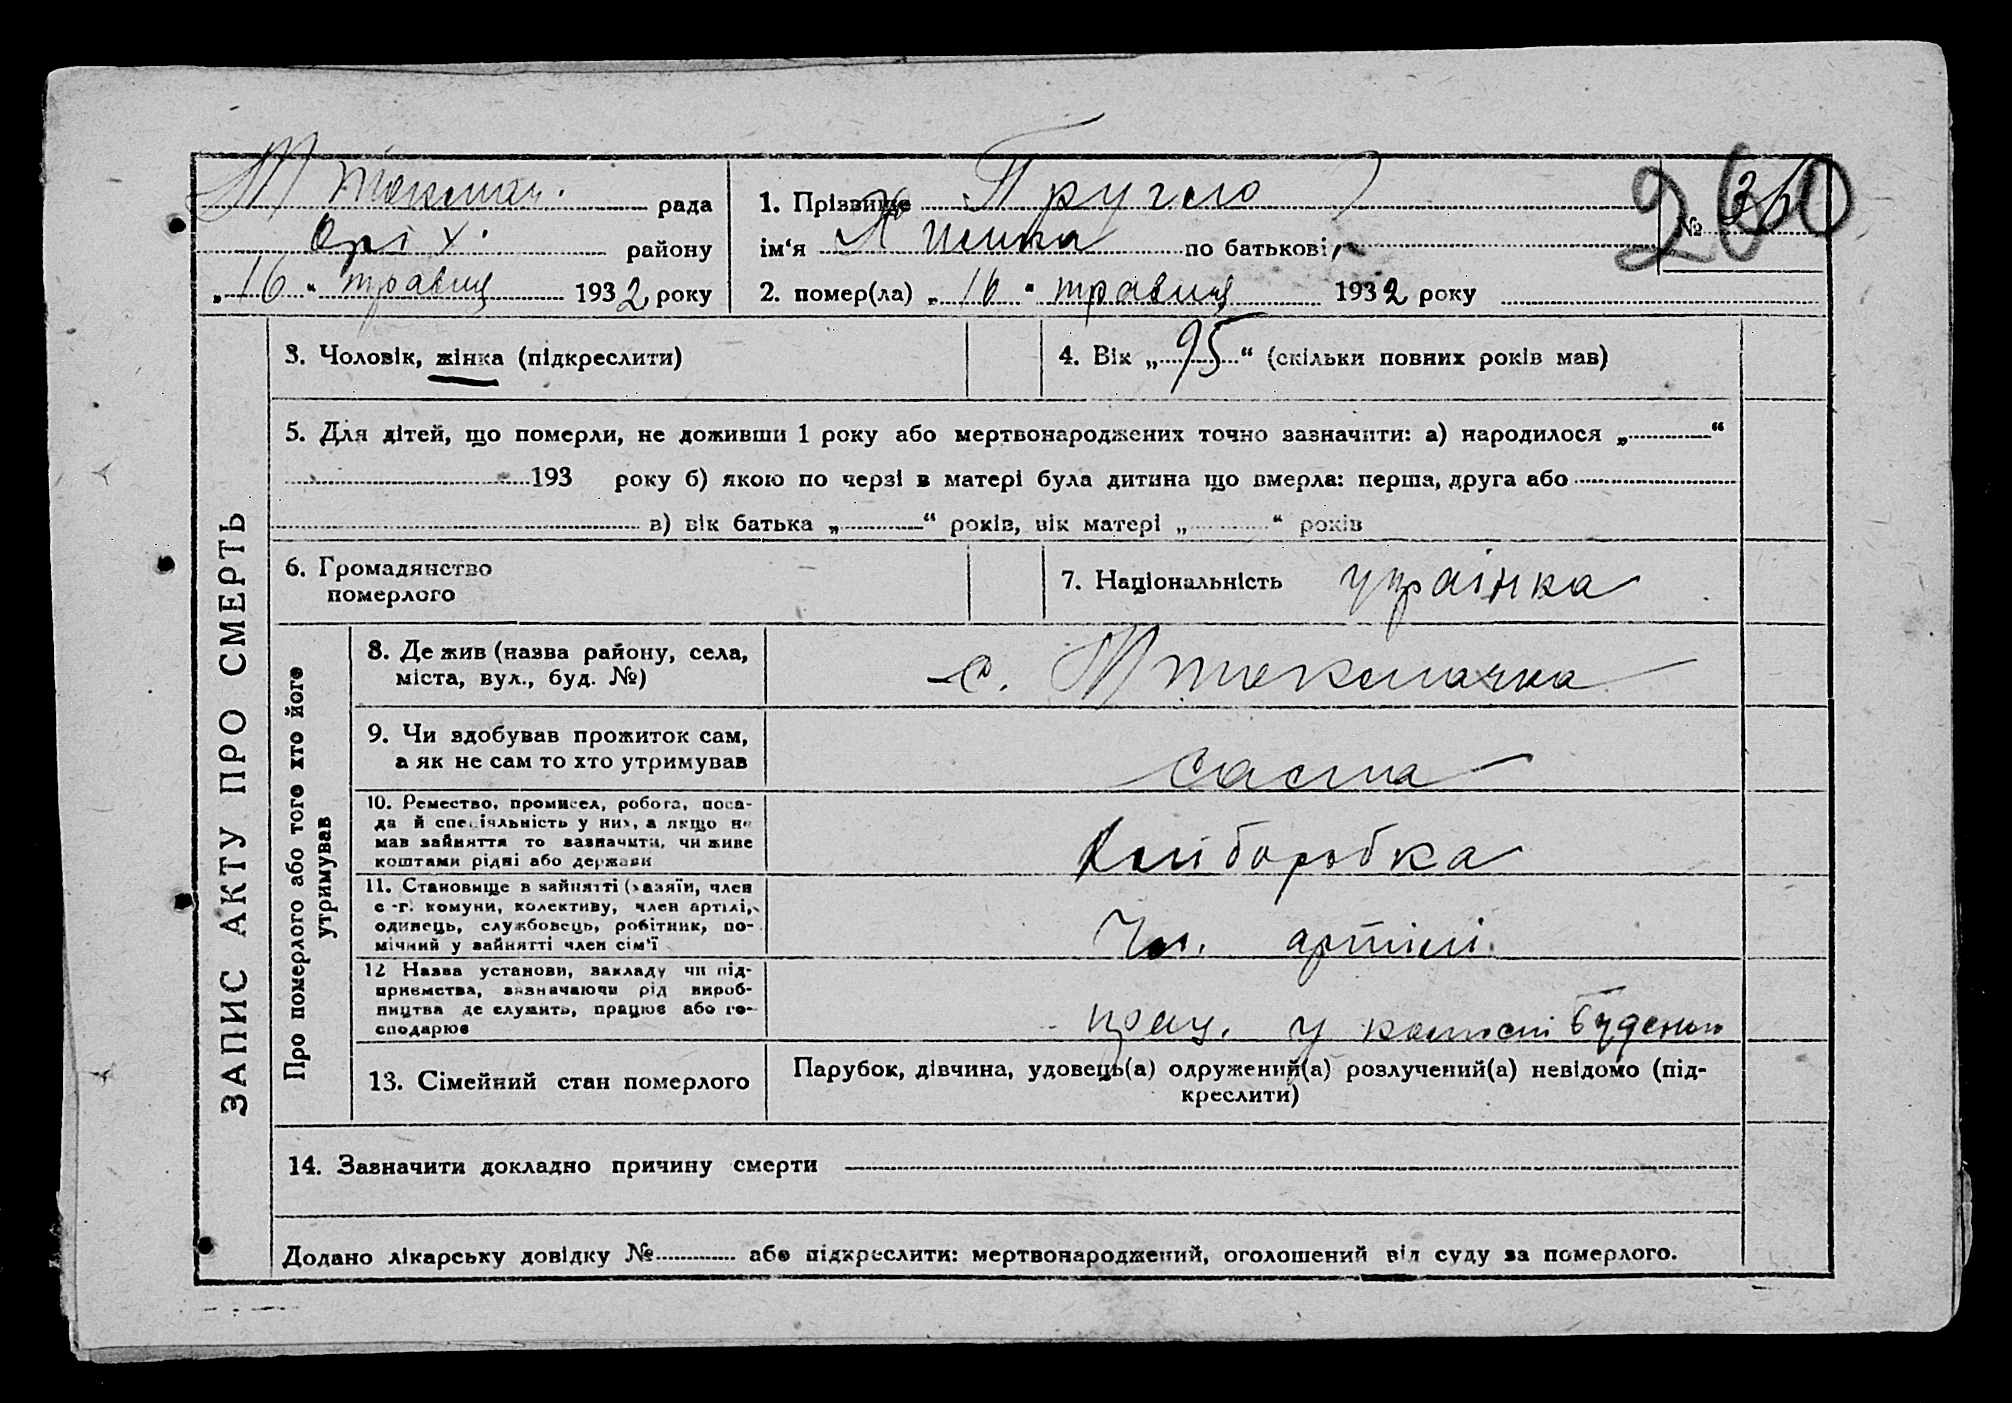 М Токмач. рада
Оріх. району
„16“ травня 1932 року
1. Прізвище Пругло
ім‘я по батькові
2. помер(ла) „16“ травня 1932 року
№ 36
260
ЗАПИС АКТУ ПРО СМЕРТЬ
3. Чоловік, жінка (підкреслити)
4. Вік „95“ (скільки повних років мав)
5. Для дітей, що померли, не доживши 1 року або мертвонароджених точно зазначити: а) народилося „ “
193 року б) якою по черзі в матері була дитина що вмерла: перша, друга або
в) вік батька „ “ років, вік матері „ “ років
6. Громадянство
померлого
7. Національність українка
Про померлого або того хто його
утримував
8. Де жив (назва району, села,
міста, вул., буд. №)
с. М Токмачка
9. Чи здобував прожиток сам,
а як не сам то хто утримував
сама
10. Ремество, промисел, робота, поса-
да й спеціяльність у них, а якщо не
мав зайняття то зазначити, чи живе
коштами рідні або держави
хліборобка
11. Становище в зайнятті (хазяїн, член
с.-г. комуни, колективу, член артілі,
одинець, службовець, робітник, по-
мічний у зайнятті член сім‘ї
Чл. артілі
12 Назва установи, закладу чи під-
приємства, зазначаючи рід вироб-
ництва де служить, працює або го-
сподарює
прац. у колгоспі
13. Сімейний стан померлого
Парубок, дівчина, удовець(а) одружений(а) розлучений(а) невідомо (під-
креслити)
14. Зазначити докладно причину смерти
Додано лікарську довідку № або підкреслити: мертвонароджений, оголошений від суду за померлого.